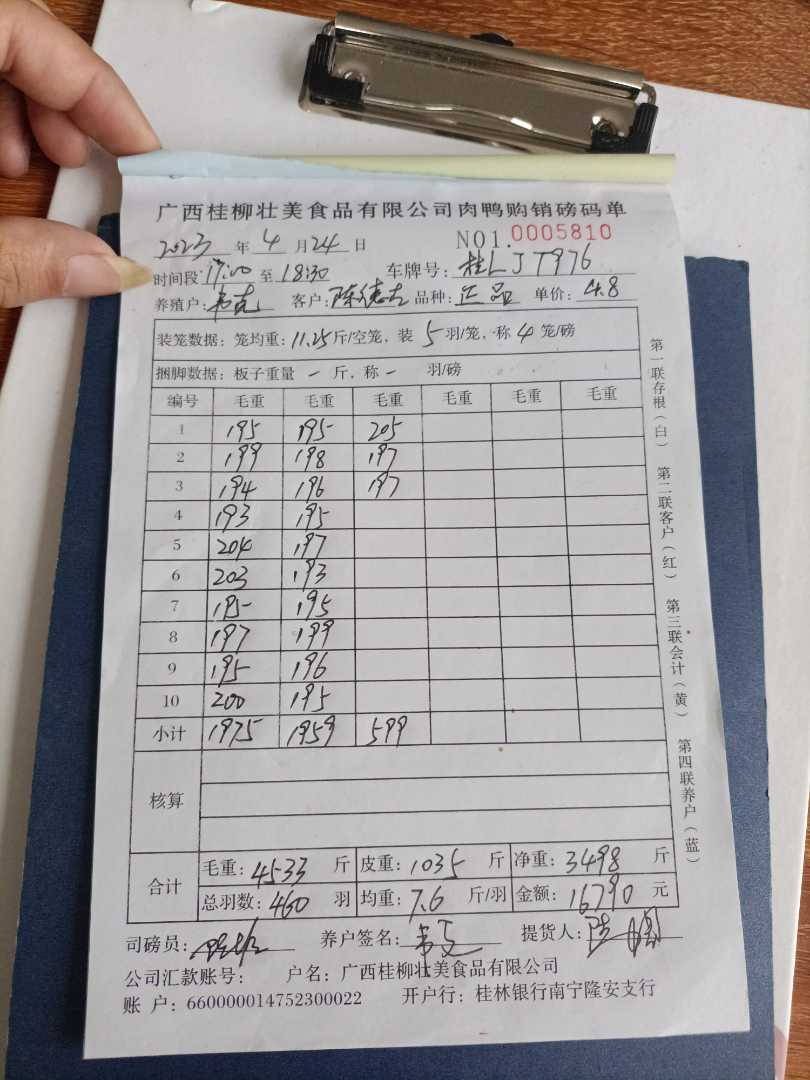 广西桂柳壮美食品有限公司肉鸭购销磅码单
2023 年 4 月 24 日 NO1. 0005810
时间段: 17:00 至 18:30 车牌号: 桂L JT976
养殖户: 客户: 陈德吉 品种: 正品 单价: 4.8
装笼数据: 笼均重: 11.25 斤/空笼, 装 5 羽/笼, 称 4 笼/磅
捆脚数据: 板子重量 一 斤, 称 一 羽/磅
编号 毛重 毛重 毛重 毛重 毛重 毛重
1 195 195 205
2 199 198 197
3 194 196 197
4 193 195
5 204 197
6 203 193
7 195 195
8 197 199
9 195 196
10 200 195
小计 1975 1959 599
核算
合计 毛重: 4533 斤 皮重: 1035 斤 净重: 3498 斤
总羽数: 460 羽 均重: 7.6 斤/羽 金额: 16790 元
司磅员: 养户签名: 提货人:
公司汇款账号: 户名: 广西桂柳壮美食品有限公司
账 户: 660000014752300022 开户行: 桂林银行南宁隆安支行
第一联存根(白) 第二联客户(红) 第三联会计(黄) 第四联养户(蓝)